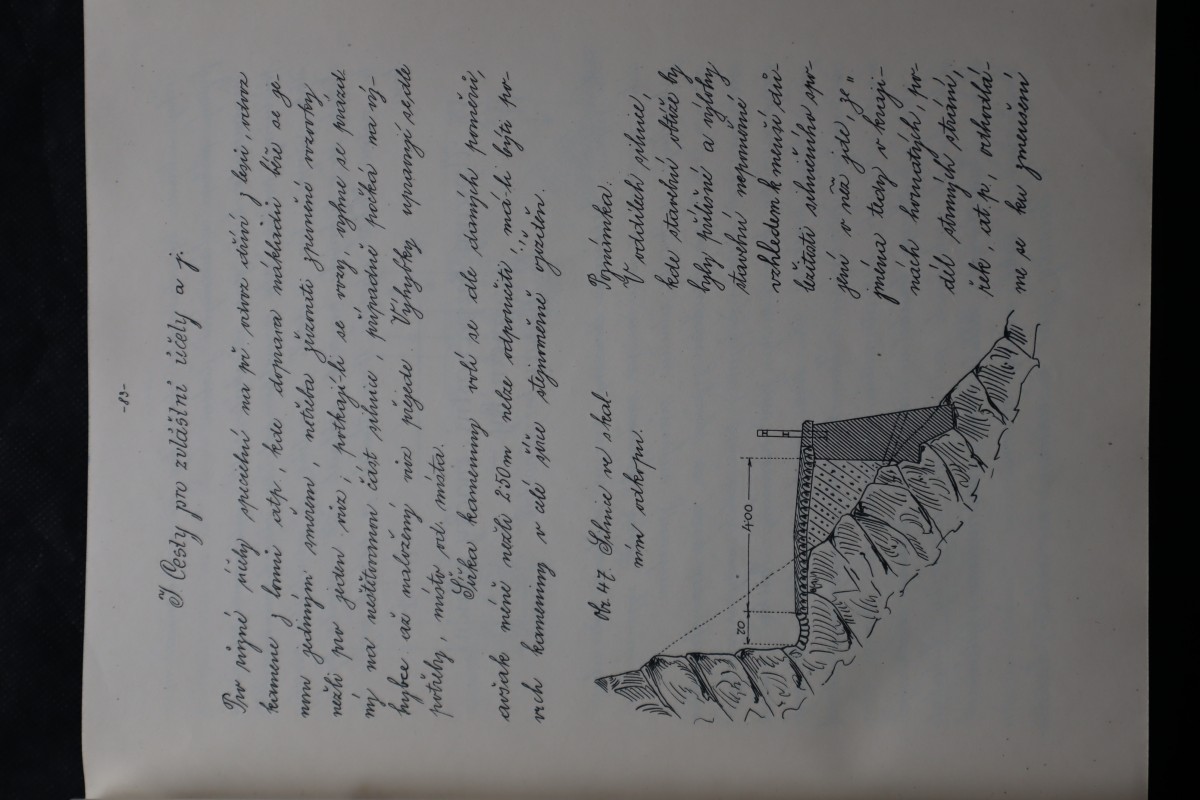 -83-
I Cesty pro zvláštní účely a j.
Pro různé účely specielní na př. svoz dříví z lesů, odvoz
kamene z lomů atp., kde doprava nákladů běře se je-
nom jediným směrem, netřeba zřizovati zpevnění vozovky
nežli pro jeden vůz; potkají-li se vozy, vyhne se prázd-
ný na neštětovanou část silnice, případně počká na vý-
hybce až naložený vůz přejede. Výhybky upravují se dle
potřeby, místo od místa.
Šířka kameniny volí se dle daných poměrů,
avšak méně nežli 2·50m nelze odporučiti, má-li býti po-
vrch kameniny v celé šíři stejnoměrně vyježděn.
Obr. 47. Silnice ve skal-
ním odkopu.
20
400
Poznámka.
V oddílech silnic,
kde stavební obtíže by
byly přílišné a výlohy
stavební nepoměrné
vzhledem k menší dů-
ležitosti silničního spo-
jení o něž jde, ze-
jména tedy v kraji-
nách hornatých, po-
dél strmých strání,
řek, at.p., odhodlá-
me se ku zmenšení